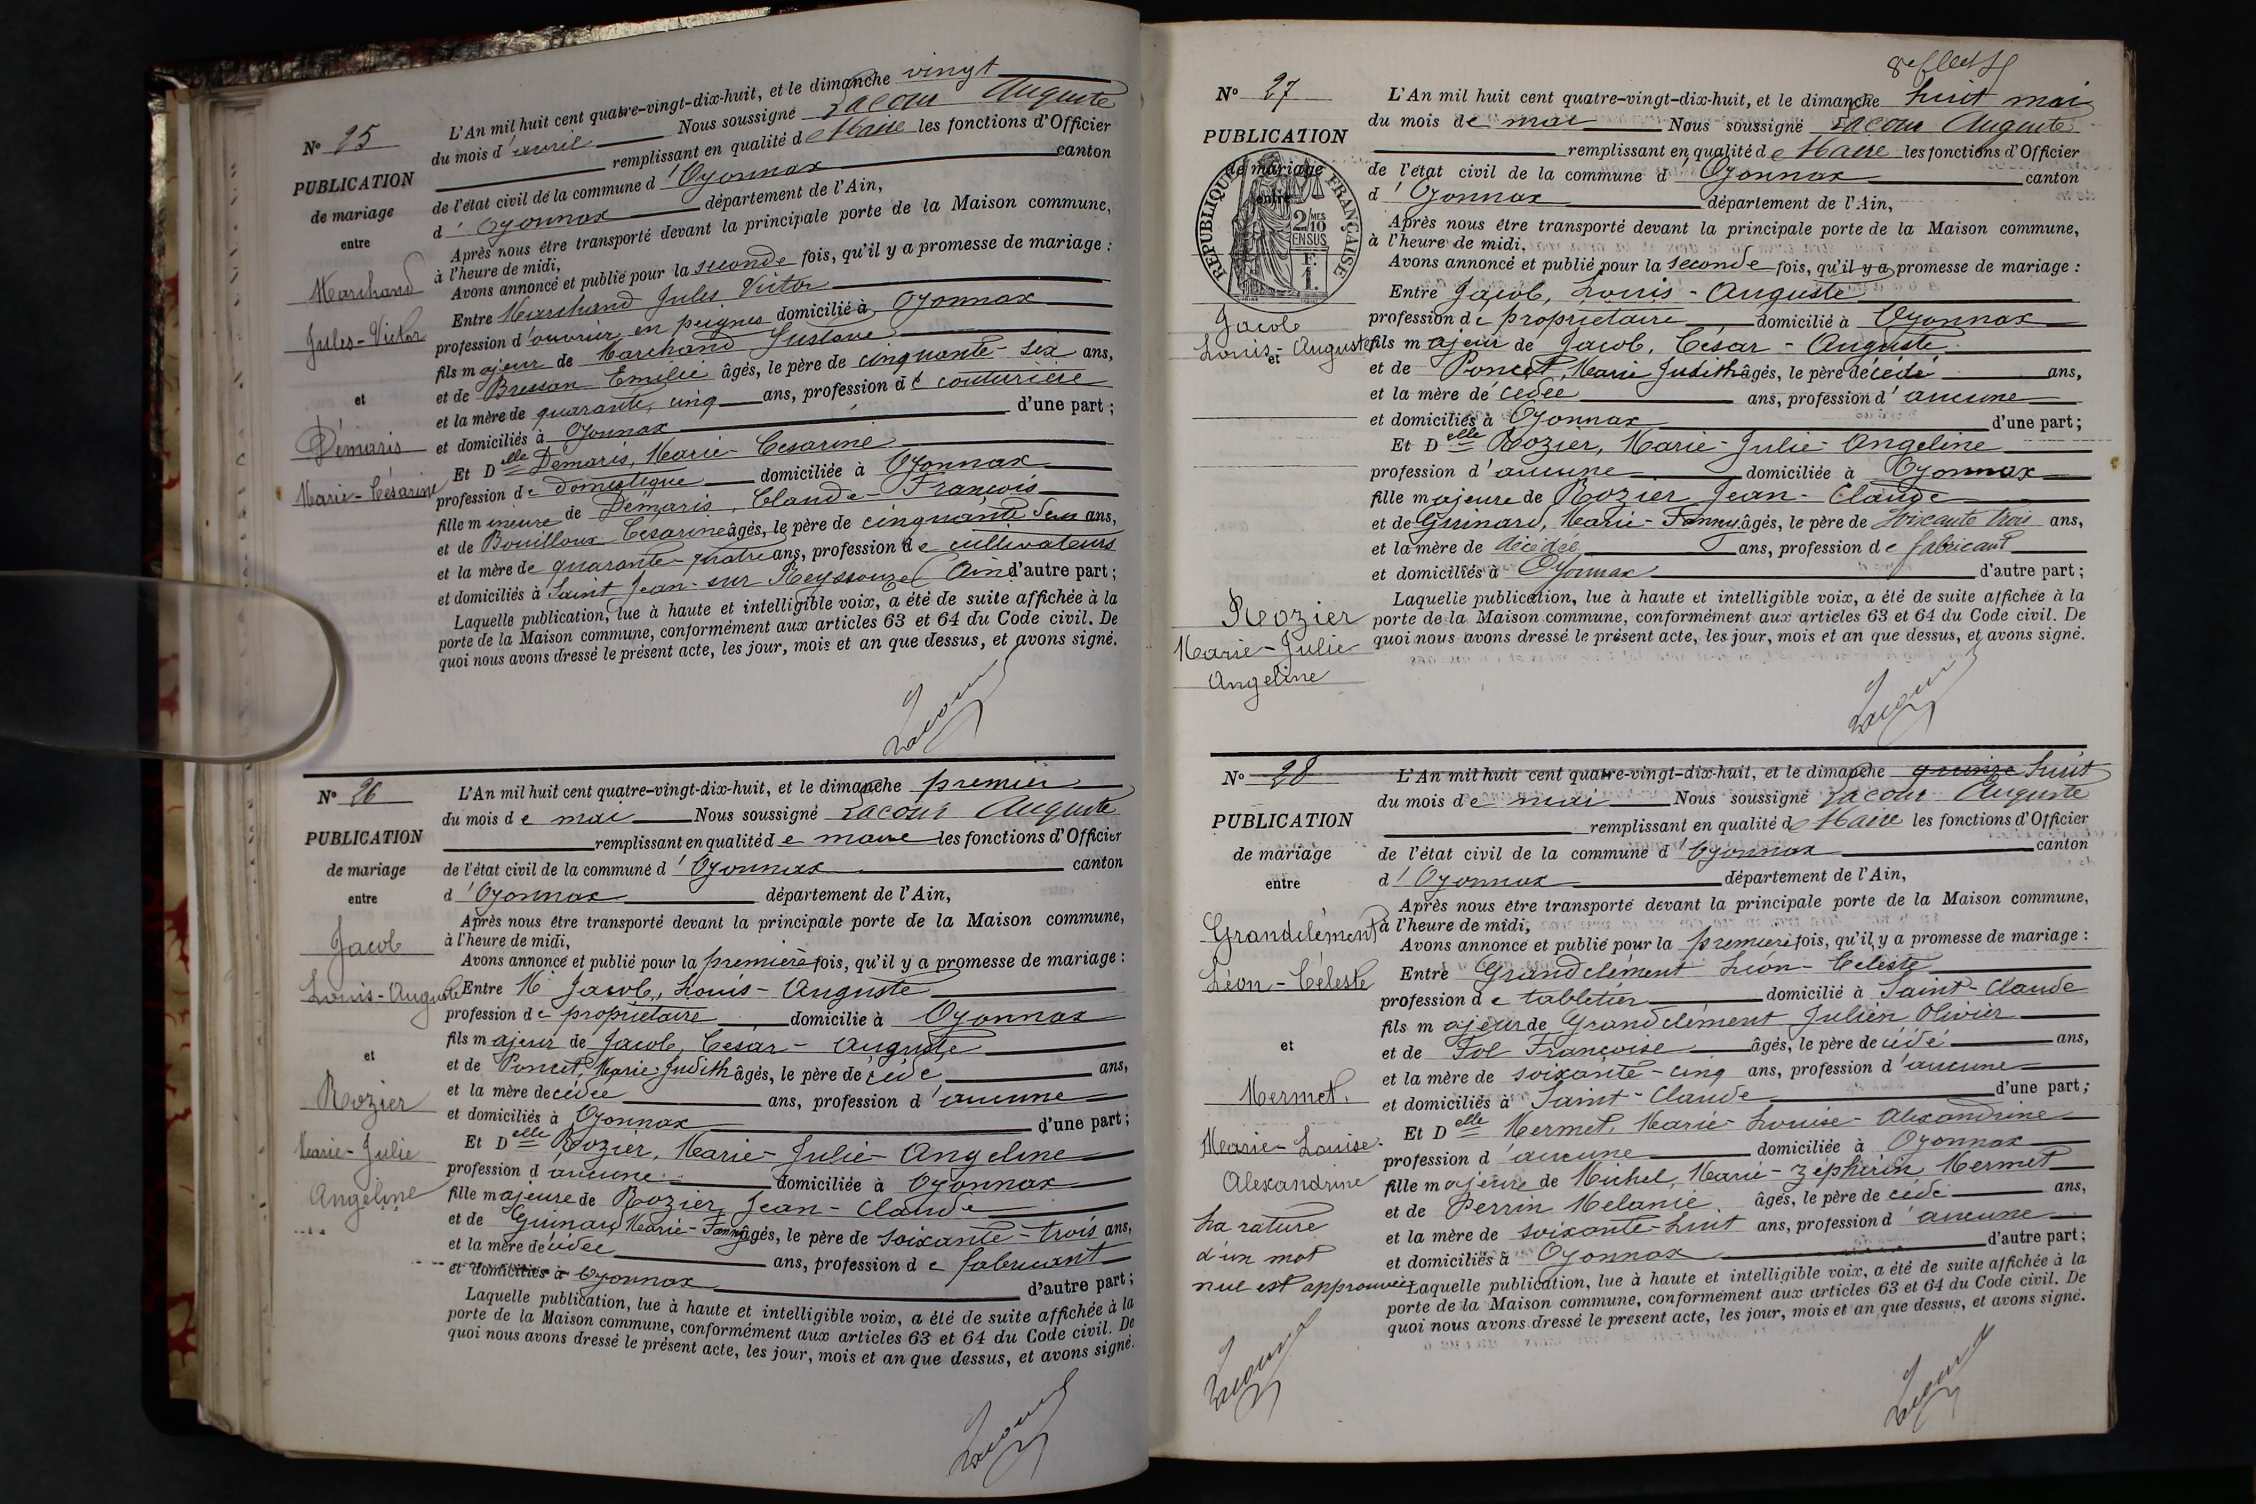 N° 25
PUBLICATION
de mariage
entre
Marchand
Jules-Victor
et
Démaris
Marie-Césarine
L'An mil huit cent quatre-vingt-dix-huit, et le dimanche vingt
du mois d'avril Nous soussigné Lacour Auguste
remplissant en qualité de Maire les fonctions d'Officier
de l'état civil de la commune d'Oyonnax canton
d'Oyonnax département de l'Ain,
Après nous être transporté devant la principale porte de la Maison commune,
à l'heure de midi,
Avons annoncé et publié pour la seconde fois, qu'il y a promesse de mariage :
Entre Marchand Jules Victor
profession d'ouvrier en peignes domicilié à Oyonnax
fils majeur de Marchand Gustave
et de Bressan Emélie âgés, le père de cinquante-six ans,
et la mère de quarante, cinq ans, profession de couturière
et domiciliés à Oyonnax d'une part ;
Et Delle Démaris, Marie-Césarine
profession de domestique domiciliée à Oyonnax
fille mineure de Démaris, Claude-François
et de Bouilloux Césarine âgés, le père de cinquante ans,
et la mère de quarante-quatre ans, profession de cultivateurs
et domiciliés à Saint Jean-sur Reyssouze (Ain) d'autre part ;
Laquelle publication, lue à haute et intelligible voix, a été de suite affichée à la
porte de la Maison commune, conformément aux articles 63 et 64 du Code civil. De
quoi nous avons dressé le présent acte, les jour, mois et an que dessus, et avons signé.
Lacour
N° 26
PUBLICATION
de mariage
entre
Jacob
Louis-Auguste
et
Rozier
Marie-Julie
Angéline
L'An mil huit cent quatre-vingt-dix-huit, et le dimanche premier
du mois de mai Nous soussigné Lacour Auguste
remplissant en qualité de maire les fonctions d'Officier
de l'état civil de la commune d'Oyonnax canton
d'Oyonnax département de l'Ain,
Après nous être transporté devant la principale porte de la Maison commune,
à l'heure de midi,
Avons annoncé et publié pour la première fois, qu'il y a promesse de mariage :
Entre M Jacob, Louis-Auguste
profession de propriétaire domicilié à Oyonnax
fils majeur de Jacob, César-Auguste
et de Poncet, Marie Judith âgés, le père décédé ans,
et la mère décédée ans, profession d'aucune
et domiciliés à Oyonnax d'une part ;
Et Delle Rozier, Marie-Julie-Angeline
profession d'aucune domiciliée à Oyonnax
fille majeure de Rozier Jean-Claude
et de Guinard, Marie-Fanny âgés, le père de soixante-trois ans,
et la mère décédée ans, profession de fabricant
et domiciliés à Oyonnax d'autre part ;
Laquelle publication, lue à haute et intelligible voix, a été de suite affichée à la
porte de la Maison commune, conformément aux articles 63 et 64 du Code civil. De
quoi nous avons dressé le présent acte, les jour, mois et an que dessus, et avons signé.
Lacour
N° 27
PUBLICATION
de mariage
entre
RÉPUBLIQUE FRANÇAISE
2/10MES
EN SUS
F.
1.
Jacob
Louis-Auguste
et
Rozier
Marie-Julie
Angeline
L'An mil huit cent quatre-vingt-dix-huit, et le dimanche huit mai
du mois de mai Nous soussigné Lacour Auguste
remplissant en qualité de Maire les fonctions d'Officier
de l'état civil de la commune d'Oyonnax canton
d'Oyonnax département de l'Ain,
Après nous être transporté devant la principale porte de la Maison commune,
à l'heure de midi,
Avons annoncé et publié pour la seconde fois, qu'il y a promesse de mariage :
Entre Jacob, Louis-Auguste
profession de propriétaire domicilié à Oyonnax
fils majeur de Jacob, César-Auguste
et de Poncet, Marie Judith âgés, le père décédé ans,
et la mère décédée ans, profession d'aucune
et domiciliés à Oyonnax d'une part ;
Et Delle Rozier, Marie-Julie-Angeline
profession d'aucune domiciliée à Oyonnax
fille majeure de Rozier Jean-Claude
et de Guinard, Marie-Fanny âgés, le père de soixante trois ans,
et la mère de décédée ans, profession de fabricant
et domiciliés à Oyonnax d'autre part ;
Laquelle publication, lue à haute et intelligible voix, a été de suite affichée à la
porte de la Maison commune, conformément aux articles 63 et 64 du Code civil. De
quoi nous avons dressé le présent acte, les jour, mois et an que dessus, et avons signé.
Lacour
N° 28
PUBLICATION
de mariage
entre
Grandclément
Léon-Céleste
et
Mermet.
Marie-Louise.
Alexandrine
La rature
d'un mot
nul est approuvée
Lacour
L'An mil huit cent quatre-vingt-dix-huit, et le dimanche quinze huit
du mois de mai Nous soussigné Lacour Auguste
remplissant en qualité de Maire les fonctions d'Officier
de l'état civil de la commune d'Oyonnax canton
d'Oyonnax département de l'Ain,
Après nous être transporté devant la principale porte de la Maison commune,
à l'heure de midi,
Avons annoncé et publié pour la première fois, qu'il y a promesse de mariage :
Entre Grandclément Léon-Céleste
profession de tabletier domicilié à Saint-Claude
fils majeur de Grandclément Julien Olivier
et de Fol Françoise âgés, le père décédé ans,
et la mère de soixante-cinq ans, profession d'aucune
et domiciliés à Saint-Claude d'une part ;
Et Delle Mermet, Marie-Louise-Alexandrine
profession d'aucune domiciliée à Oyonnax
fille majeure de Michel, Marie-Zéphirin Mermet
et de Perrin Mélanie. âgés, le père décédé ans,
et la mère de soixante-huit ans, profession d'aucune
et domiciliés à Oyonnax d'autre part ;
Laquelle publication, lue à haute et intelligible voix, a été de suite affichée à la
porte de la Maison commune, conformément aux articles 63 et 64 du Code civil. De
quoi nous avons dressé le présent acte, les jour, mois et an que dessus, et avons signé.
Lacour